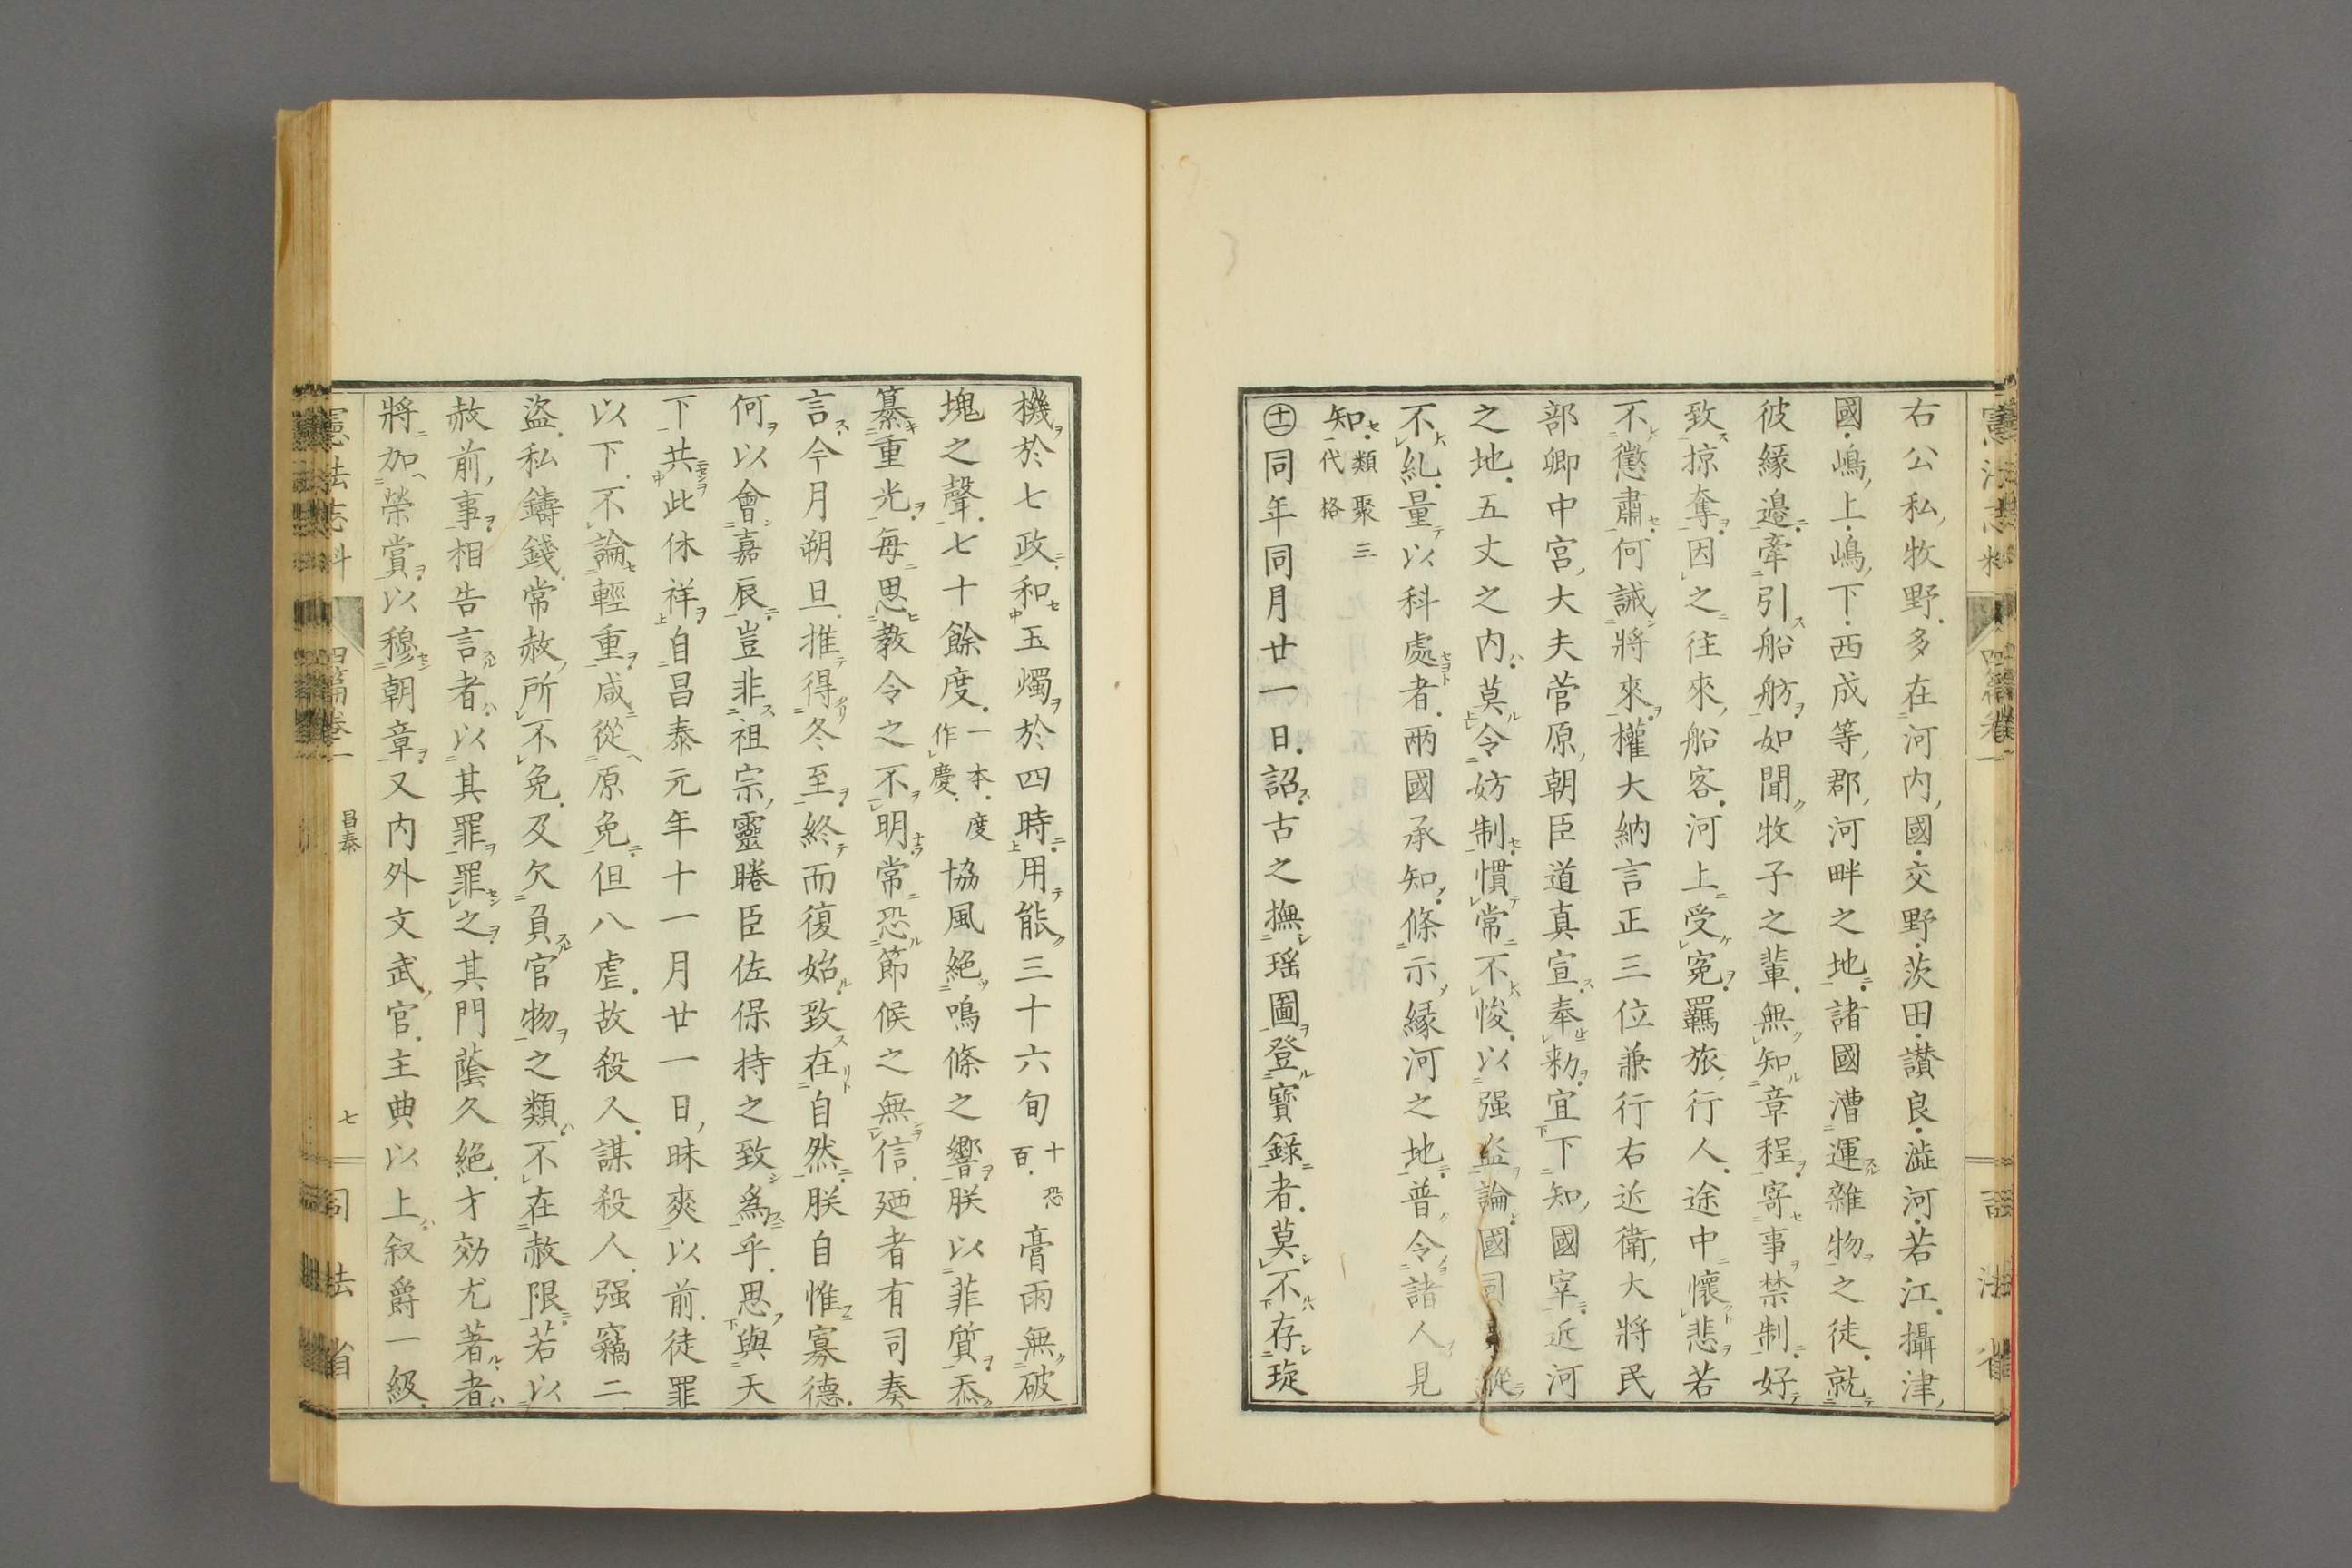 右公私牧野多在河内國交野茨田讃良澁河若江攝津
國嶋上嶋下西成等郡河畔之地諸國漕運雜物之徒就
彼緣邉牽引船舫如聞牧子之輩無知章程寄事禁制好
致掠奪因之往來船客河上受寃羈旅行人途中懷悲若
不懲肅何誡將來權大納言正三位兼行右近衛大將民
部卿中宮大夫菅原朝臣道真宣奉勑宜下知國宰近河
之地五丈之内莫令妨制慣常不悛以强盗論國司
不糺量以科處者兩國承知條示縁河之地普令諸人見
知類聚三代格
㊉同年同月廿一日詔古之撫瑶圖登寳錄者莫不存琁
機於七政和玉燭於四時用能三十六旬十恐百膏雨無破
塊之聲七十餘度一本度作慶協風絶鳴條之響朕以菲質忝
纂重光毎思教令之不明常恐節候之無信廼者有司奏
言今月朔旦推得冬至終而復始致在自然朕自惟寡德
何以會嘉辰豈非祖宗靈睠臣佐保持之致爲乎思與天
下共此休祥自昌泰元年十一月廿一日昧爽以前徒罪
以下不論輕重咸從原免但八虐故殺人謀殺人强竊二
盗私鑄錢常赦所不免及欠負官物之類不在赦限若以
赦前事相告言者以其罪罪之其門蔭久絶才効尤著者
將加榮賞以穆朝章又内外文武官主典以上叙爵一級
憲法志料 四篇卷一 昌泰 七 司法省